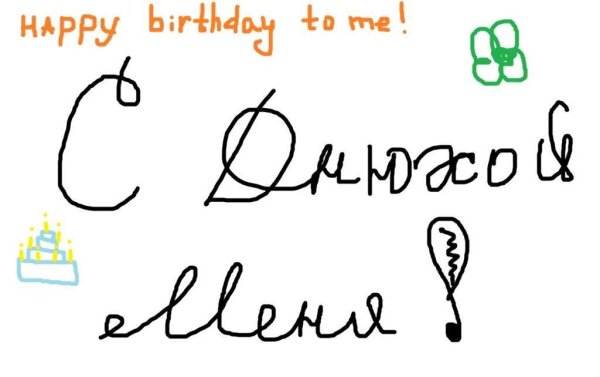 HAPPY birthday to me!
С Днюхой
Меня!